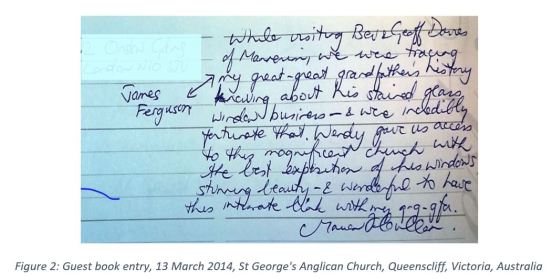 While visiting Bev & Geoff Davies
of Mannerim, we were tracing
my great-great grandfather's history
James
Ferguson
knowing about his stained glass
window business – & were incredibly
fortunate that Wendy gave us access
to this magnificent church with
the best exposition of his windows
stunning beauty – & wonderful to have
this intimate link with my g-g-gfa.
Figure 2: Guest book entry, 13 March 2014, St George's Anglican Church, Queenscliff, Victoria, Australia